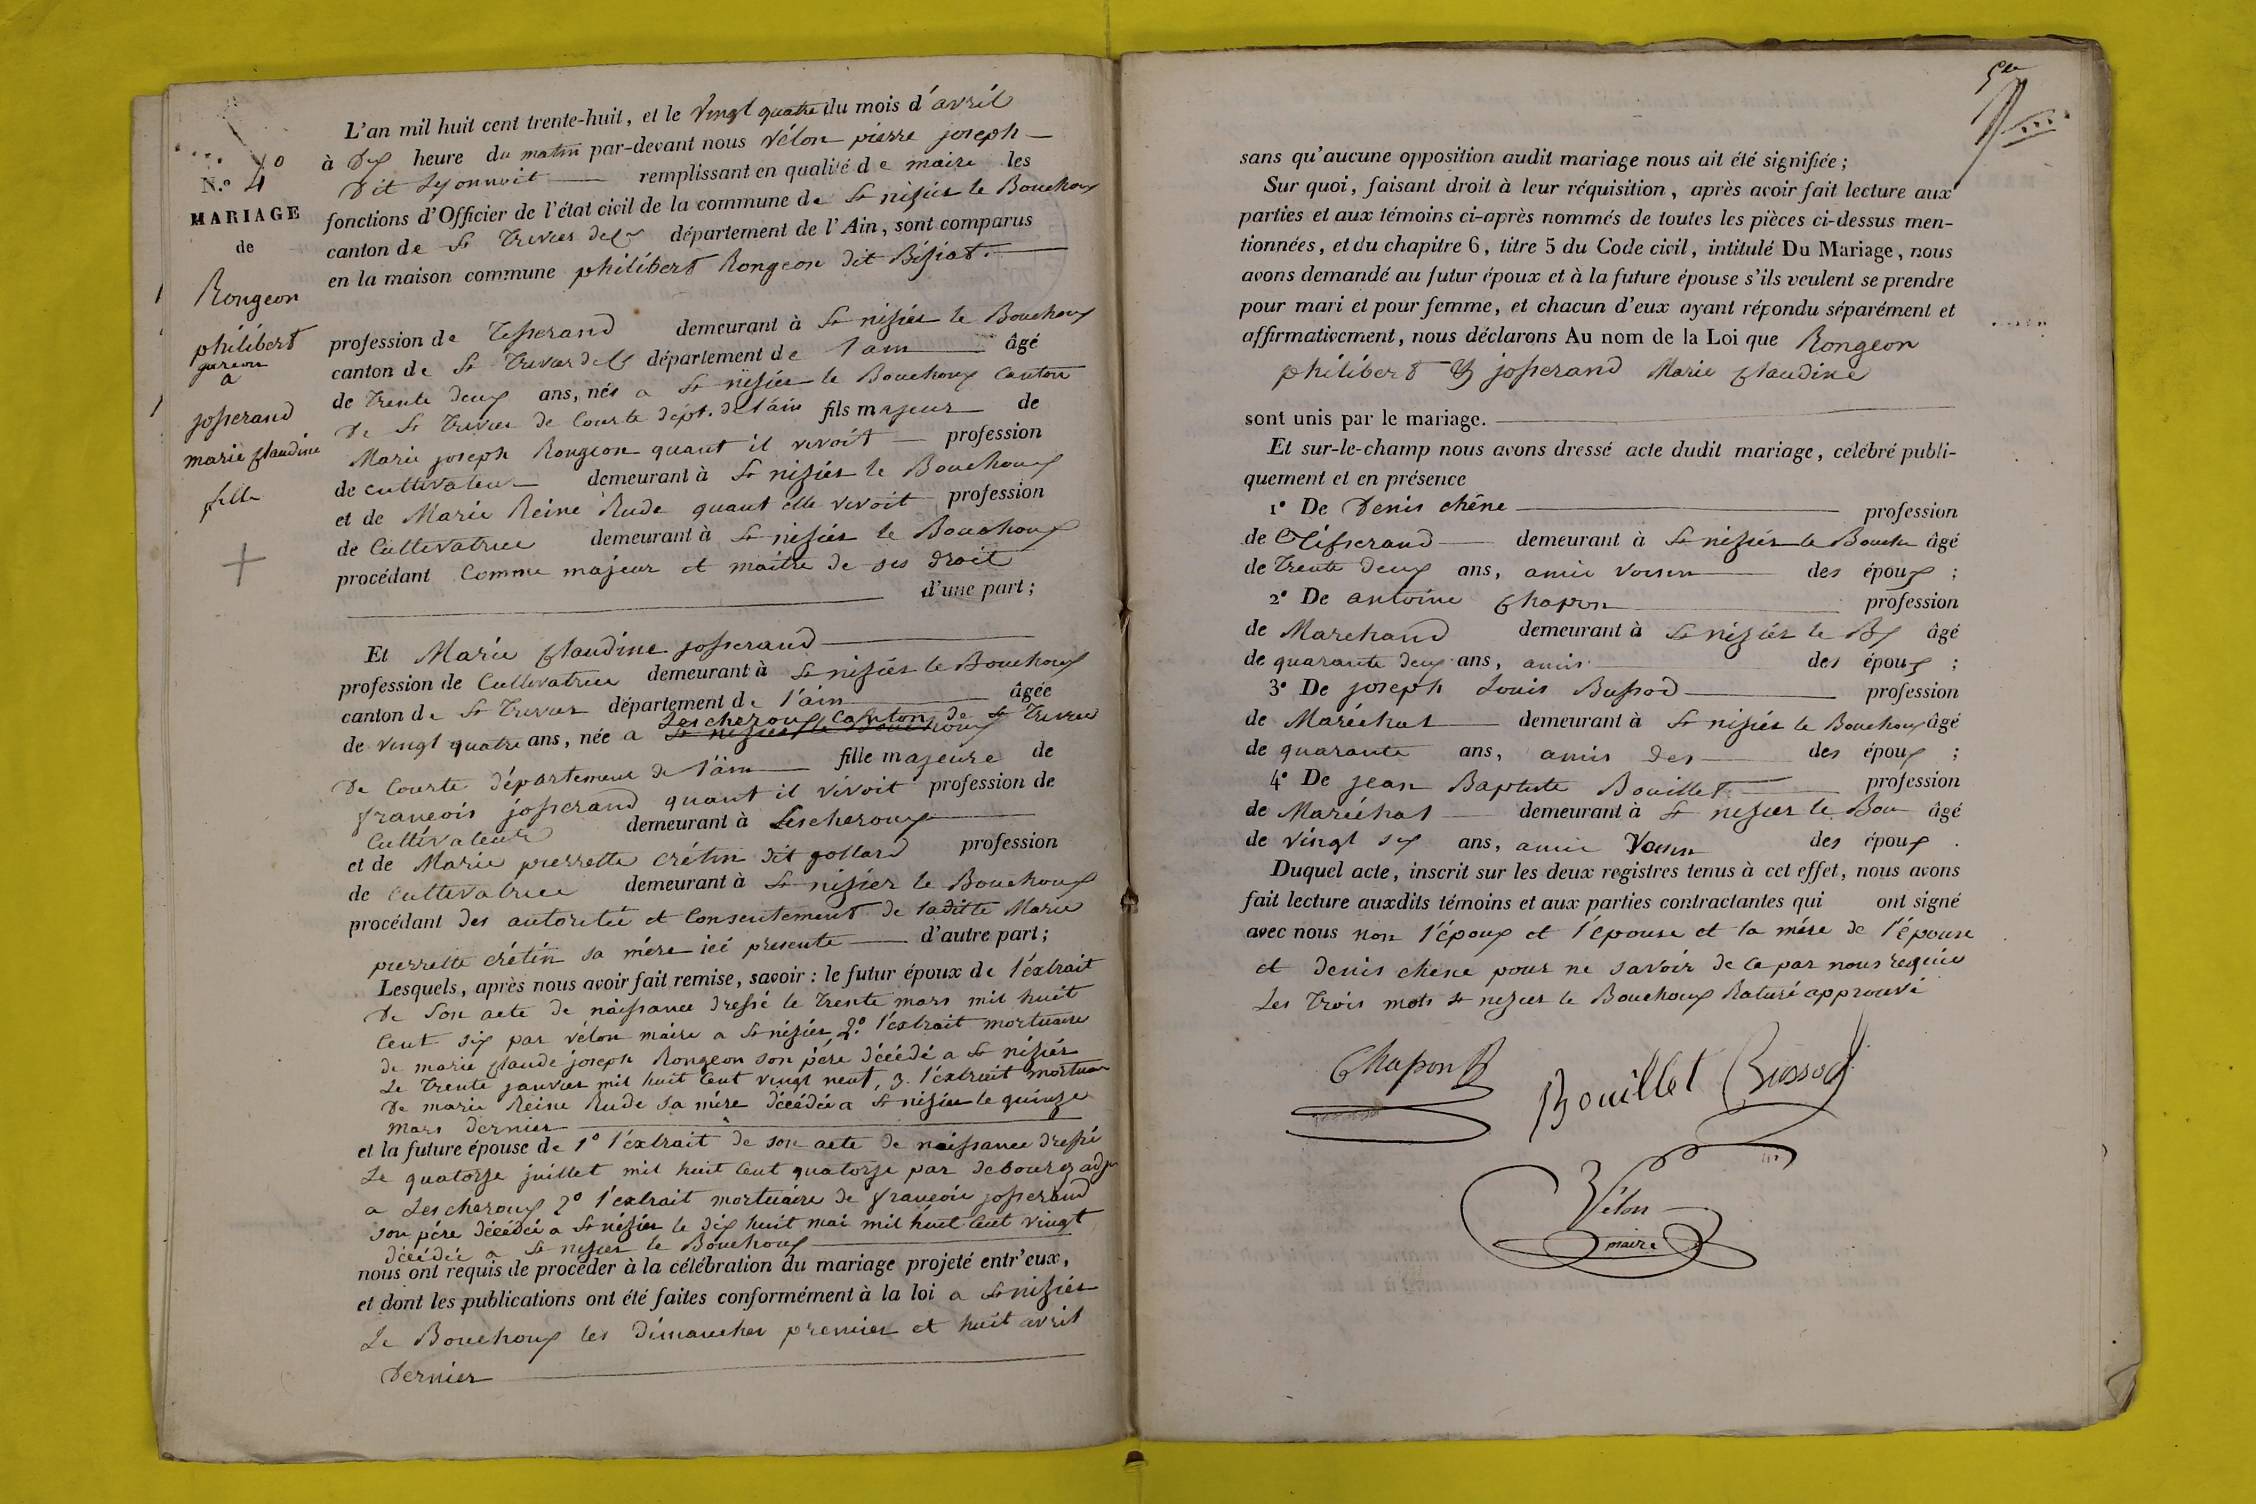 N.° 4°
MARIAGE
de
Rongeon
philibert
garcon
a
josserand
marie Claudine
fille
L'an mil huit cent trente-huit, et le vingt quatre du mois d'avril
à Dix heure du matin par-devant nous vélon pierre joseph
Dit Lyonnoit remplissant en qualité de maire les
fonctions d'Officier de l'état civil de la commune de St nizier le Bouchoux
canton de St Trivier de C département de l'Ain, sont comparus
en la maison commune philibert Rongeon dit Bisiat.
profession de Tisserand demeurant à St nizier le Bouchoux
canton de St Trivier de C département de l'ain âgé
de Trente deux ans, nés a St nizier le Bouchoux Canton
De St Trivier de Courte dépt. de l'ain fils majeur de
Marie joseph Rongeon quant il vivoit profession
de cultivateur demeurant à St nizier le Bouchoux
et de Marie Reine Rude quant elle vivoit profession
de Cultivatrice demeurant à St nizier le Bouchoux
procédant Comme majeur et maitre de ses droit
d'une part;
Et Marie Claudine josserand
profession de Cultivatrice demeurant à St nizier le Bouchoux
canton de St Trivier département de l'ain âgée
Lescheroux Canton de St Trivier
de vingt quatre ans, née a St nizier le Bouchoux
De Courte département de l'ain fille majeure de
françois josserand quant il vivoit profession de
Cultivateur demeurant à Lescheroux
et de Marie pierrette crétin dit gollard profession
de cultivatrice demeurant à St nizier le Bouchoux
procédant des autoritée et Consentement de laditte Marie
pierrette crétin sa mére icé presente d'autre part;
Lesquels, après nous avoir fait remise, savoir : le futur époux de l'éxtrait
De Son acte de naissance dressé le Trente mars mil huit
Cent six par vélon maire a St nizier 2.° l'éxtrait mortuaire
de marie Claude joseph Rongeon son pére décédé a St nizier
Le Trente janvier mil huit Cent vingt neuf, 3. l'éxtrait mortuaire
De marie Reine Rude sa mére décédée a St nizier le quinze
mars dernier
et la future épouse de 1° l'éxtrait de son acte de naissance dressé
Le quatorze juillet mil huit Cent quatorze par debourg adjt
a Lescheroux 2° l'éxtrait mortuaire de françois josserand
son pére décédée a St nizier le dix huit mai mil huit Cent vingt
décédée a St nizier le Bouchoux
nous ont requis de procéder à la célébration du mariage projeté entr'eux,
et dont les publications ont été faites conformément à la loi a St nizier
Le Bouchoux les dimanches premier et huit avril
Dernier
sans qu'aucune opposition audit mariage nous ait été signifiée;
Sur quoi, faisant droit à leur réquisition, après avoir fait lecture aux
parties et aux témoins ci-après nommés de toutes les pièces ci-dessus men-
tionnées, et du chapitre 6, titre 5 du Code civil, intitulé Du Mariage, nous
avons demandé au futur époux et à la future épouse s'ils veulent se prendre
pour mari et pour femme, et chacun d'eux ayant répondu séparément et
affirmativement, nous déclarons Au nom de la Loi que Rongeon
philibert Et josserand Marie Claudine
sont unis par le mariage.
Et sur-le-champ nous avons dressé acte dudit mariage, célébré publi-
quement et en présence
1° De Denis chêne profession
de Tisserand demeurant à St nizier le Bouch âgé
de Trente deux ans, amie voisin des époux ;
2° De antoine Chapon profession
de Marchand demeurant à St nizier le Bx âgé
de quarante deux ans, amis des époux ;
3° De joseph Louis Bussod profession
de Maréchal demeurant à St nizier le Bouchoux âgé
de quarante ans, amis des des époux ;
4° De jean Baptiste Bouillet profession
de Maréchal demeurant à St nizier le Bou âgé
de vingt six ans, amie Voisin des époux .
Duquel acte, inscrit sur les deux registres tenus à cet effet, nous avons
fait lecture auxdits témoins et aux parties contractantes qui ont signé
avec nous non l'époux et l'épouse et la mére de l'épouse
et denis chene pour ne savoir de ce par nous requie
Les Trois mots St nizier le Bouchoux Raturé approuvé
Chapon
Bouillet Bussod
Vélon
maire